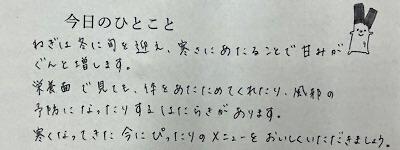 今日のひとこと
ねぎは冬に旬を迎え、寒さにあたることで甘みが
ぐんと増します。
栄養面で見ても、体をあたためてくれたり、風邪の
予防になったりするはたらきがあります。
寒くなってきた今にぴったりのメニューをおいしくいただきましょう。